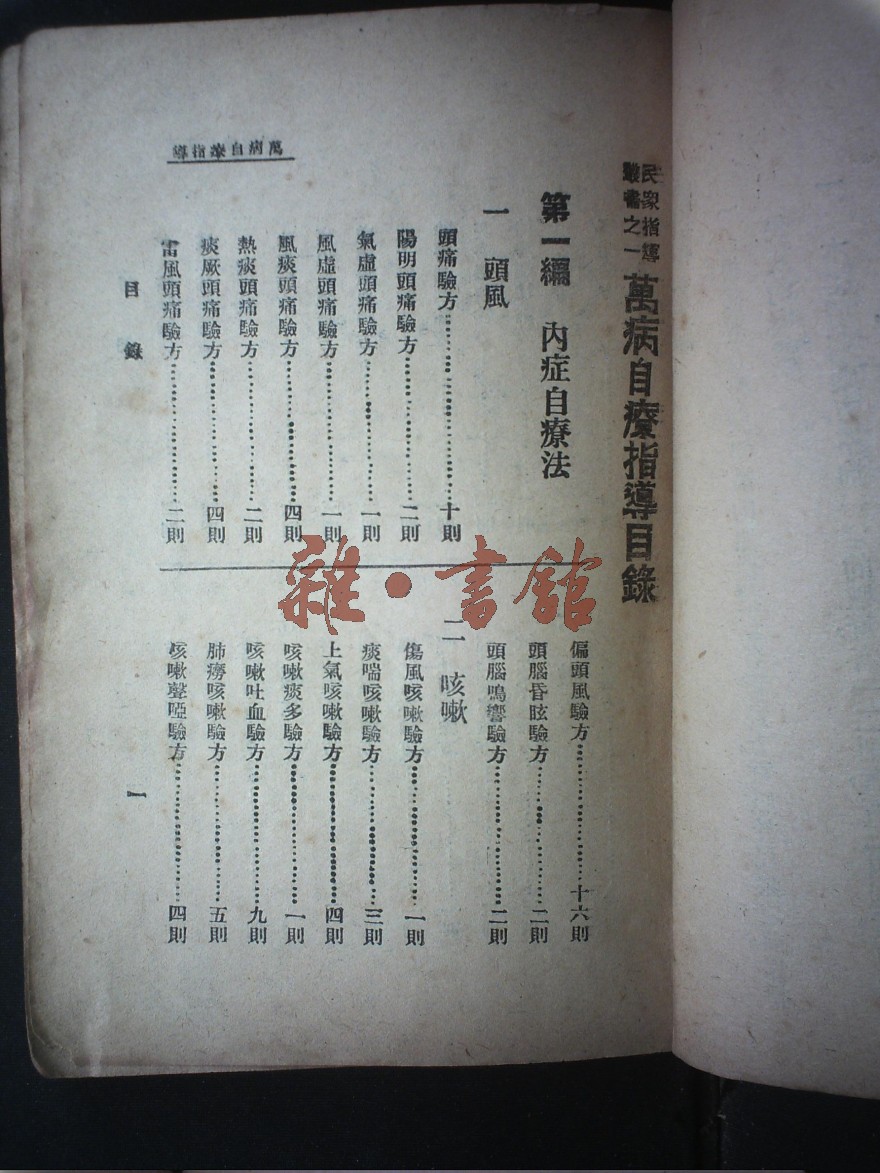 民眾指導
叢書之一
萬病自療指導目錄
第一編　內症自療法
一　頭風
頭痛驗方……十則
陽明頭痛驗方……二則
氣虛頭痛驗方……一則
風虛頭痛驗方……一則
風痰頭痛驗方……四則
熱痰頭痛驗方……二則
痰厥頭痛驗方……四則
雷風頭痛驗方……二則
偏頭風驗方……十六則
頭腦昏眩驗方……二則
頭腦鳴響驗方……二則
二　咳嗽
傷風咳嗽驗方……一則
痰喘咳嗽驗方……三則
上氣咳嗽驗方……四則
咳嗽痰多驗方……一則
咳嗽吐血驗方……九則
肺癆咳嗽驗方……五則
咳嗽聲啞驗方……四則
萬病自療指導
目錄
一
雜·書館